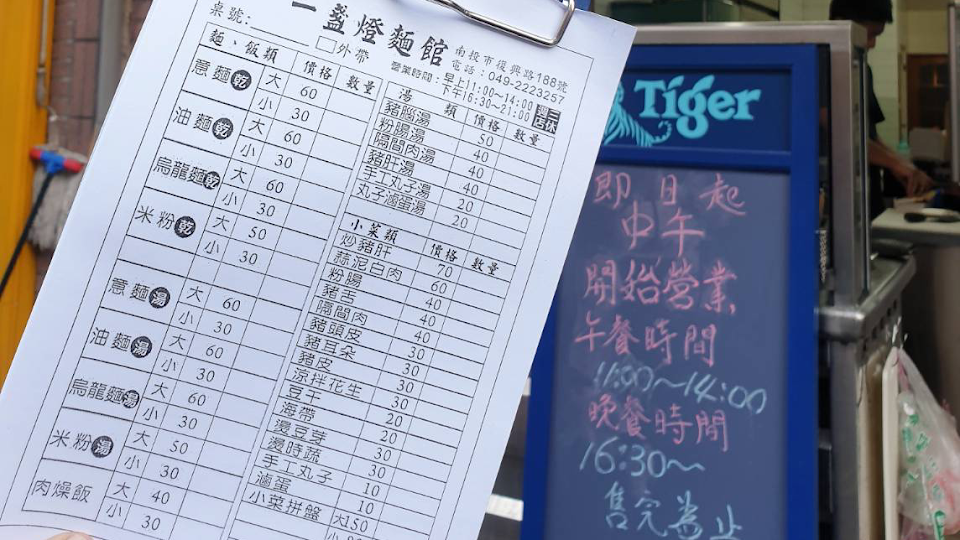 一盞燈麵館
桌號:
□外帶
南投市復興路188號
電話:049-2223257
營業時間:早上11:00~14:00
下午16:30~21:00
週三店休
麵、飯類 價格 數量
意麵乾 大 60
小 30
油麵乾 大 60
小 30
烏龍麵乾 大 60
小 30
米粉乾 大 50
小 30
意麵湯 大 60
小 30
油麵湯 大 60
小 30
烏龍麵湯 大 60
小 30
米粉湯 大 50
小 30
肉燥飯 大 40
小 30
湯類 價格 數量
豬腦湯 50
粉腸湯 40
隔間肉湯 40
豬肝湯 40
手工丸子湯 20
丸子滷蛋湯 20
小菜類 價格 數量
炒豬肝 70
蒜泥白肉 60
粉腸 40
豬舌 40
隔間肉 40
豬頭皮 30
豬耳朵 30
豬皮 30
涼拌花生 30
豆干 20
海帶 20
燙豆芽 30
燙時蔬 30
手工丸子 10
滷蛋 10
小菜拼盤 大150
小
Tiger
即日起
中午
開始營業
午餐時間
11:00~14:00
晚餐時間
16:30~
售完為止